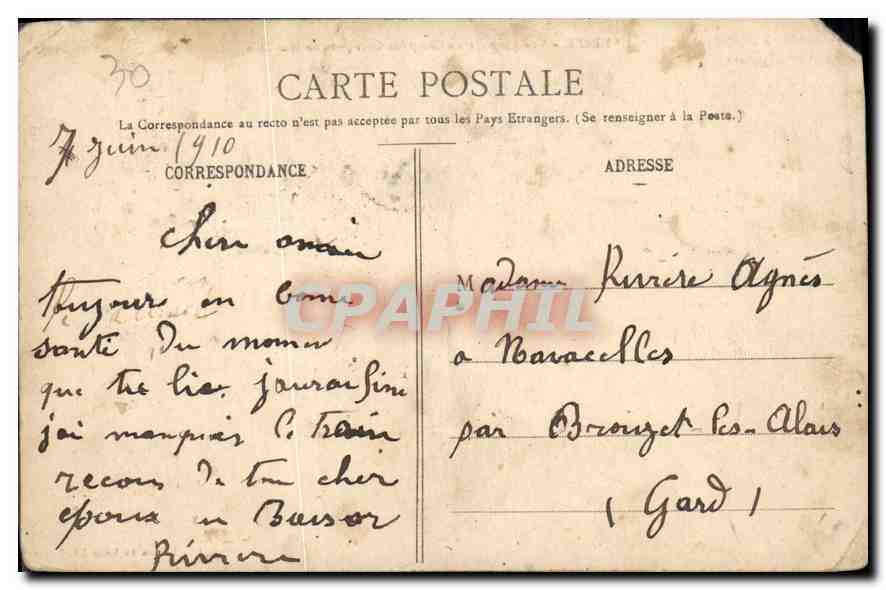 30
CARTE POSTALE
La Correspondance au recto n'est pas acceptée par tous les Pays Etrangers. (Se renseigner à la Poste.)
7 Juin 1910
CORRESPONDANCE
ADRESSE
toujour en bone
santé Du momen
que jaurai fini
jai manquer le train
recois De ton cher
epoux un Baiser
Riviere
Madame Riviere Agnés
a Navacelles
par Brouzet les-Alais
(Gard)
CPAPHIL